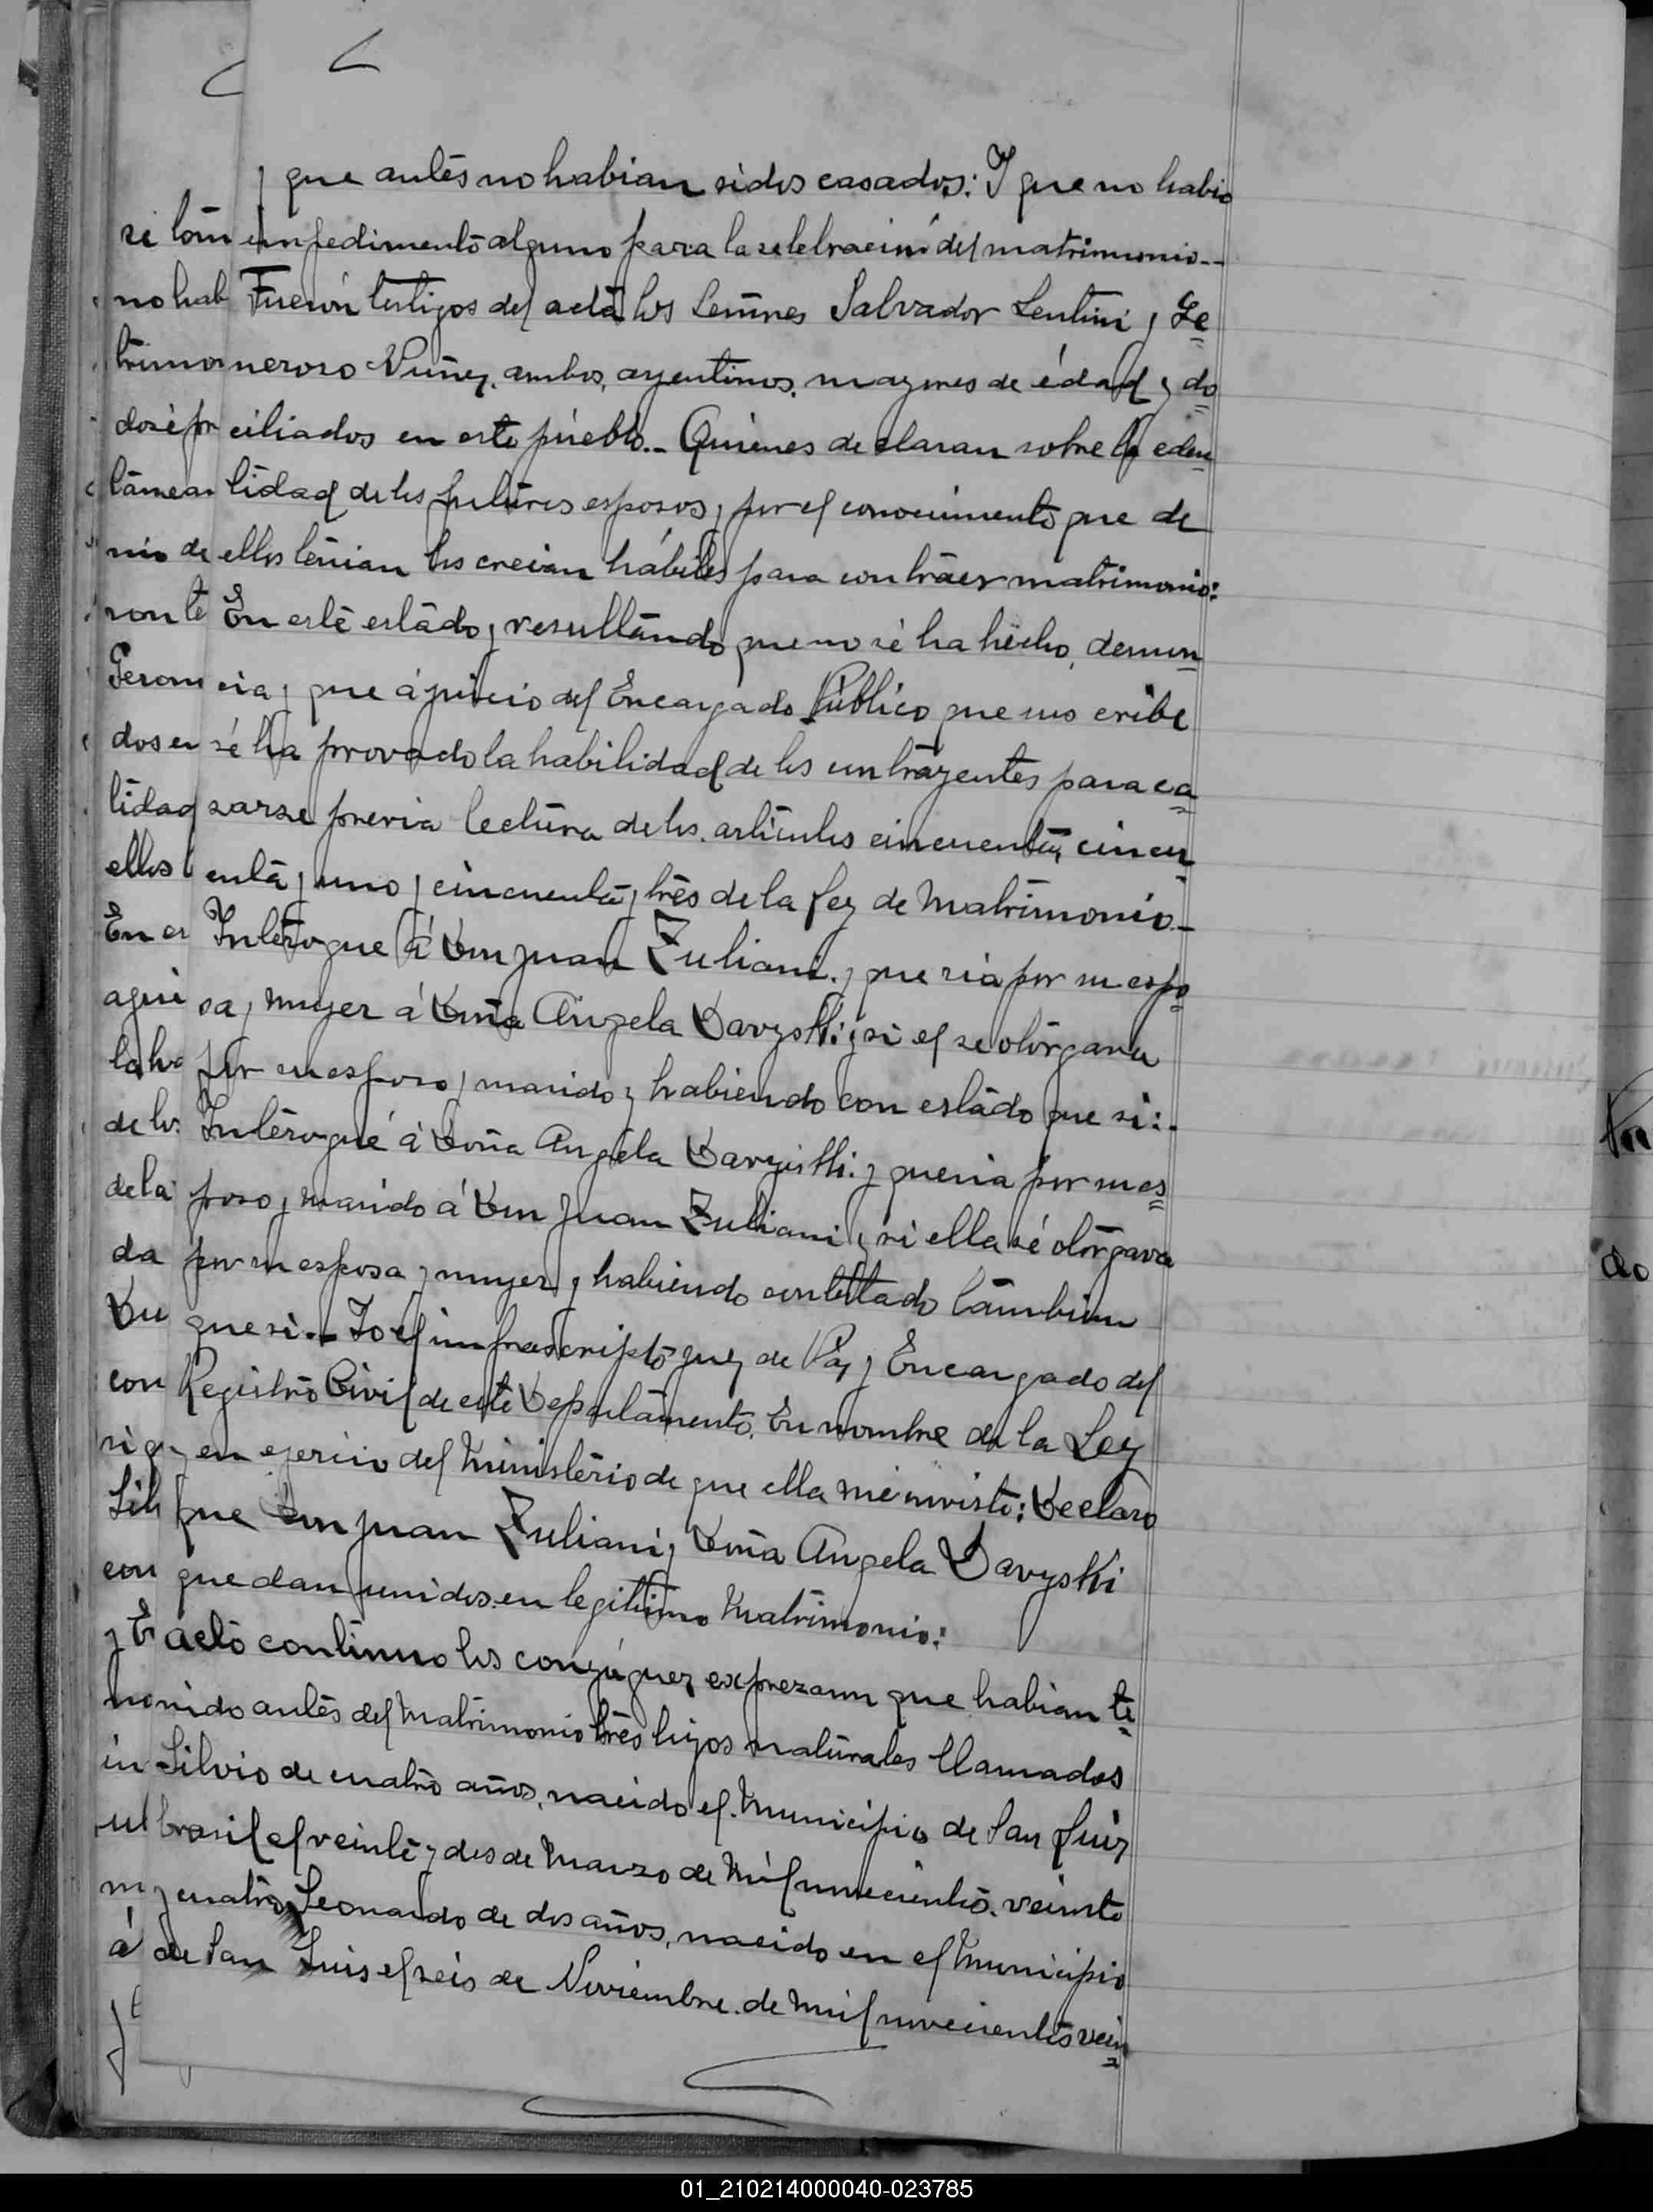 que antes no habian sidos casados: Y que no habia
impedimento alguno para la selebracion del matrimonio--
Fueron testigos del acta los Señores Salvador Lentini y Ge=
neroso Nuñez. ambos, argentinos. mayores de édad y do=
ciliados en este pueblo.- Quienes declaran sobre la eden
tidad de los futuros esposos, por el conocimiento que de
ellos tenian los creian hábiles para contraer matrimonio:
En este estado, y resultando que no sé ha hecho, denun=
cia, que á juicio del Encargado Público que suscribe
sé ha provado la habilidad de los contrayentes para ca=
sarse previa lectura de los. artículos cincuenta, cincu=
enta y uno y cincuenta y tres de la Ley de Matrimonio-
Interogue á Don Juan Zuliani. y queria por su espo=
sa y muger á Doña Angela Davyski y si el se otorgava
por su esposo y marido y habiendo con estado que si:-
Interogué á Doña Angela Davyski. y queria por su es=
poso y marido á Don Juan Zuliani y si ella sé otorgava
por su esposa y muger y habiendo contestado tambien
que si.- Yo el infrascripto Juez de Paz y Encargado del
Registro Civil de este Departamento. En nombre de la Ley
y en ejercicio del Ministerio de que ella me inviste: Declaro
que Don Juan Zuliani y Doña Angela Davyski
quedan unidos en legitimo Matrimonio:
acto continuo los conyúguez exprezaron que habian te=
nido antes del Matrimonio tres hijos naturales llamados
Silvio de cuatro años, nacido el. Municipio de San Luiz
brasil el veinte y dos de Marzo de Mil nuvecientos. veinte
y cuatro, Leonardo de dos años, nacido en el Municipio
de San Luis el seis de Noviembre. de Mil nuvecientos vein=
si tam
no hab
trimo
dosé pr
tamea
nio de
ron te
Gerom
dos en
tidad
ellos t
En es
aqui
la ha
de los
de la
da
Du
con
si
Silv
con
y E
in
m
á
01_210214000040-023785